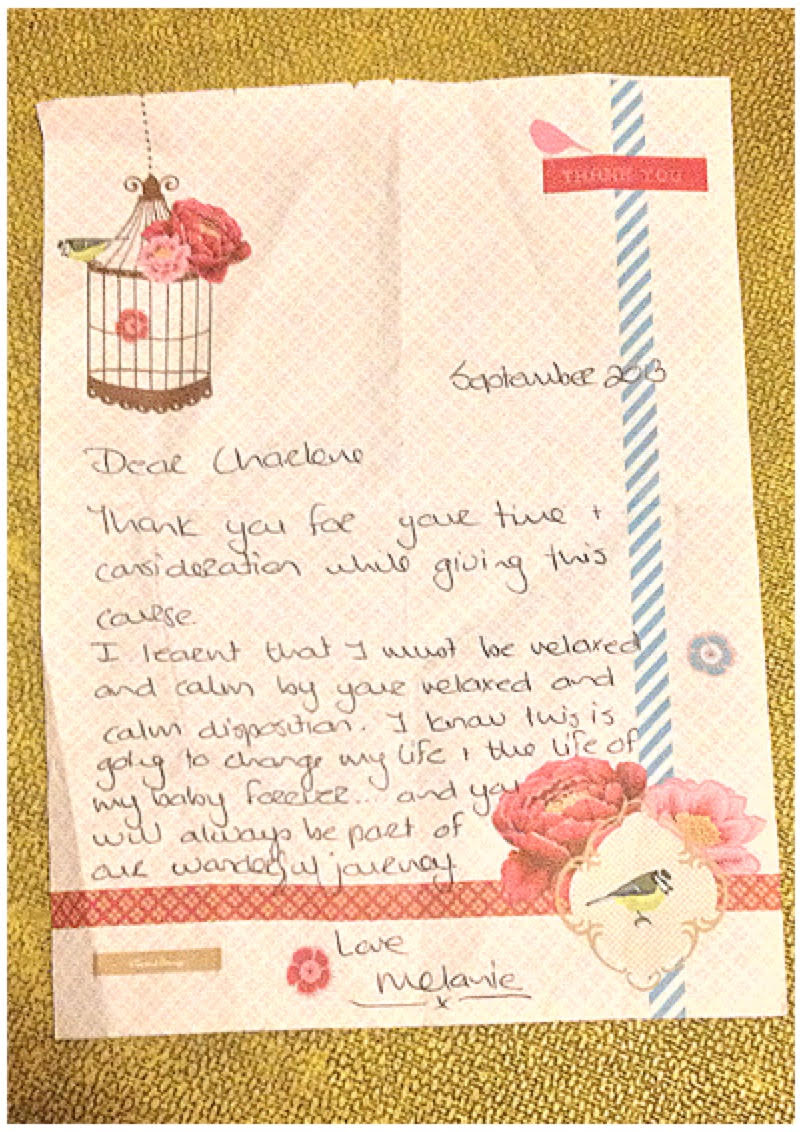 THANK YOU
September 2013
Dear Charlene
Thank you for your time +
consideration while giving this
course.
I learnt that I must be relaxed
and calm by your relaxed and
calm disposition. I know this is
going to change my life + the life of
my baby forever... and you
will always be part of
our wonderful journey.
Love
Melanie
x